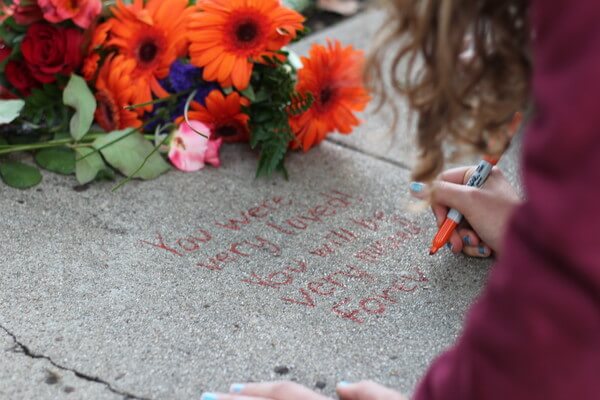 You were
very loved.
You will be
very missed
Forev